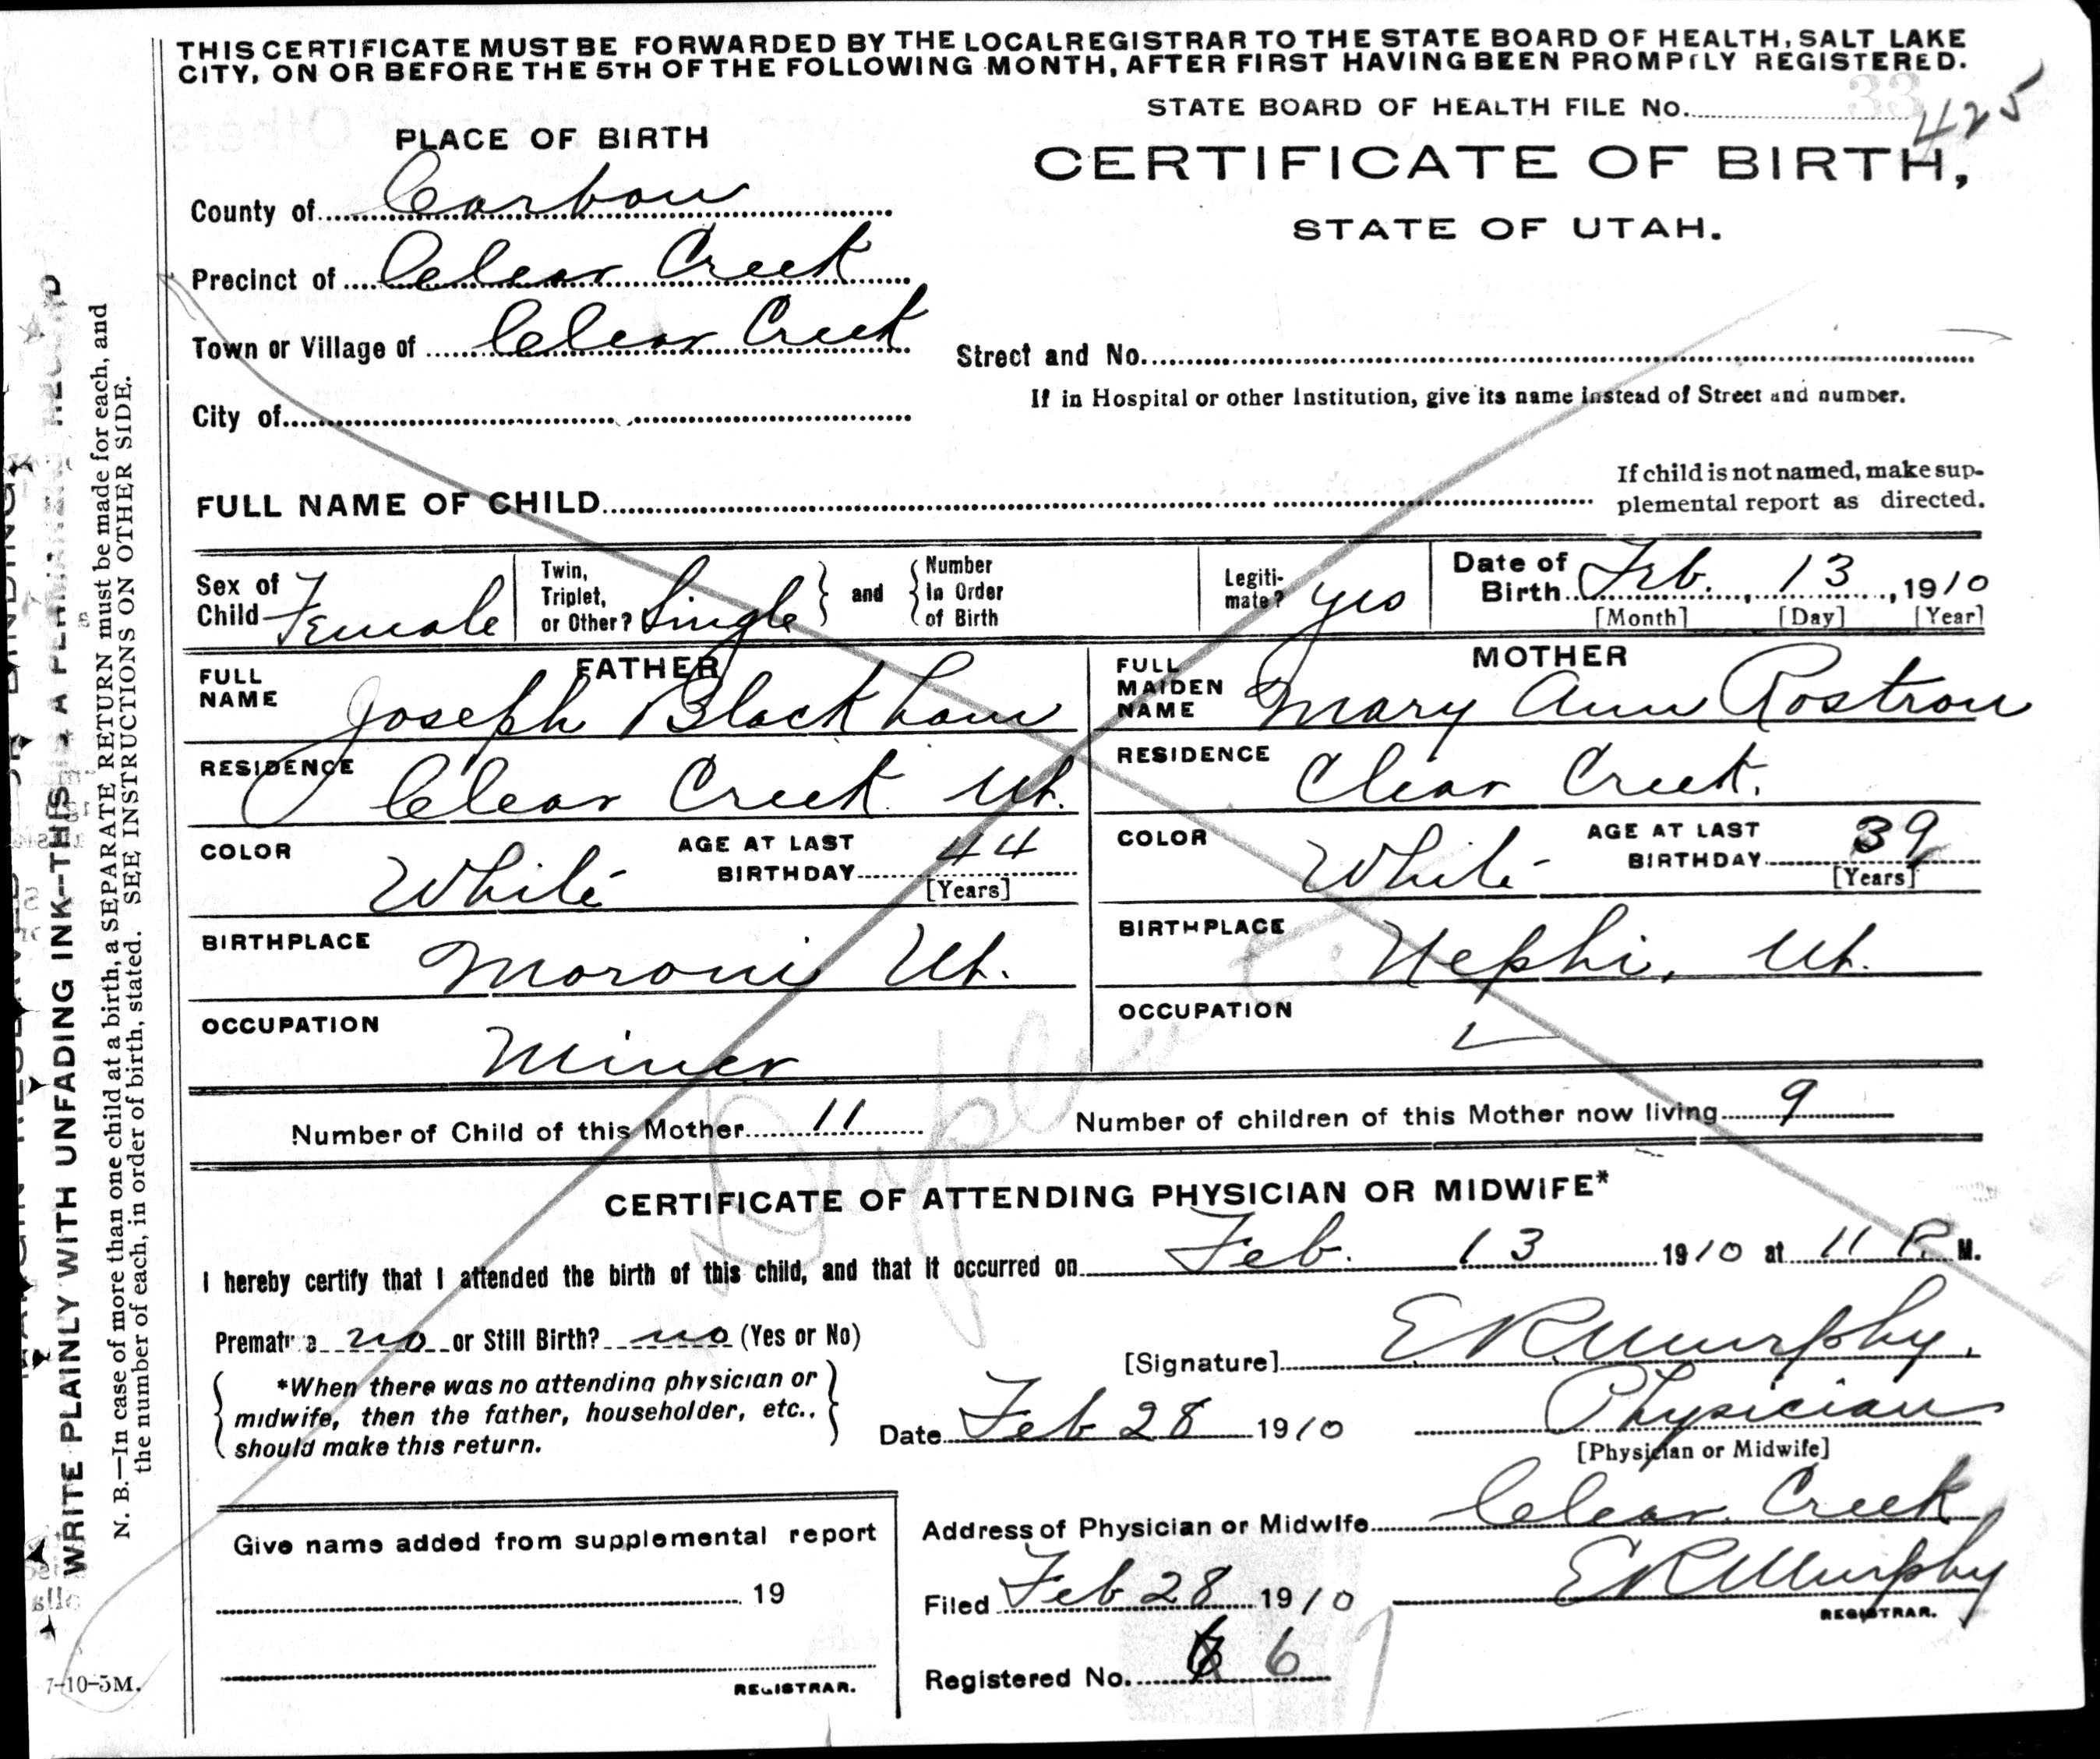 THIS CERTIFICATE MUST BE FORWARDED BY THE LOCAL REGISTRAR TO THE STATE BOARD OF HEALTH, SALT LAKE
CITY, ON OR BEFORE THE 5TH OF THE FOLLOWING MONTH, AFTER FIRST HAVING BEEN PROMPTLY REGISTERED.
STATE BOARD OF HEALTH FILE No. 33 425
PLACE OF BIRTH
CERTIFICATE OF BIRTH,
STATE OF UTAH.
County of Carbon
Precinct of Clear Creek
Town or Village of Clear Creek
Street and No.
If in Hospital or other Institution, give its name instead of Street and number.
City of
FULL NAME OF CHILD
If child is not named, make sup-
plemental report as directed.
Sex of Child Female
Twin, Triplet, or Other? Single and Number In Order of Birth
Legiti-mate? yes
Date of Birth Feb. 13, 1910
[Month] [Day] [Year]
FATHER
FULL NAME Joseph Blackham
RESIDENCE Clear Creek Ut.
COLOR White AGE AT LAST BIRTHDAY 44
[Years]
BIRTHPLACE Moroni Ut.
OCCUPATION Miner
MOTHER
FULL MAIDEN NAME Mary Ann Rostron
RESIDENCE Clear Creek.
COLOR White AGE AT LAST BIRTHDAY 39
[Years]
BIRTHPLACE Nephi, Ut.
OCCUPATION
Number of Child of this Mother 11 Number of children of this Mother now living 9
CERTIFICATE OF ATTENDING PHYSICIAN OR MIDWIFE*
I hereby certify that I attended the birth of this child, and that it occurred on Feb. 13 1910 at 11 P. M.
Premature no or Still Birth? no (Yes or No)
*When there was no attending physician or
midwife, then the father, householder, etc.,
should make this return.
[Signature] E R Murphy.
Date Feb 28 1910 Physician
[Physician or Midwife]
Address of Physician or Midwife Clear Creek
Filed Feb 28 1910 E R Murphy
REGISTRAR.
Registered No. 6
Give name added from supplemental report
19
REGISTRAR.
WRITE PLAINLY WITH UNFADING INK--THIS IS A PERMANENT RECORD
N. B.—In case of more than one child at a birth, a SEPARATE RETURN must be made for each, and
the number of each, in order of birth, stated. SEE INSTRUCTIONS ON OTHER SIDE.
7-10-5M.